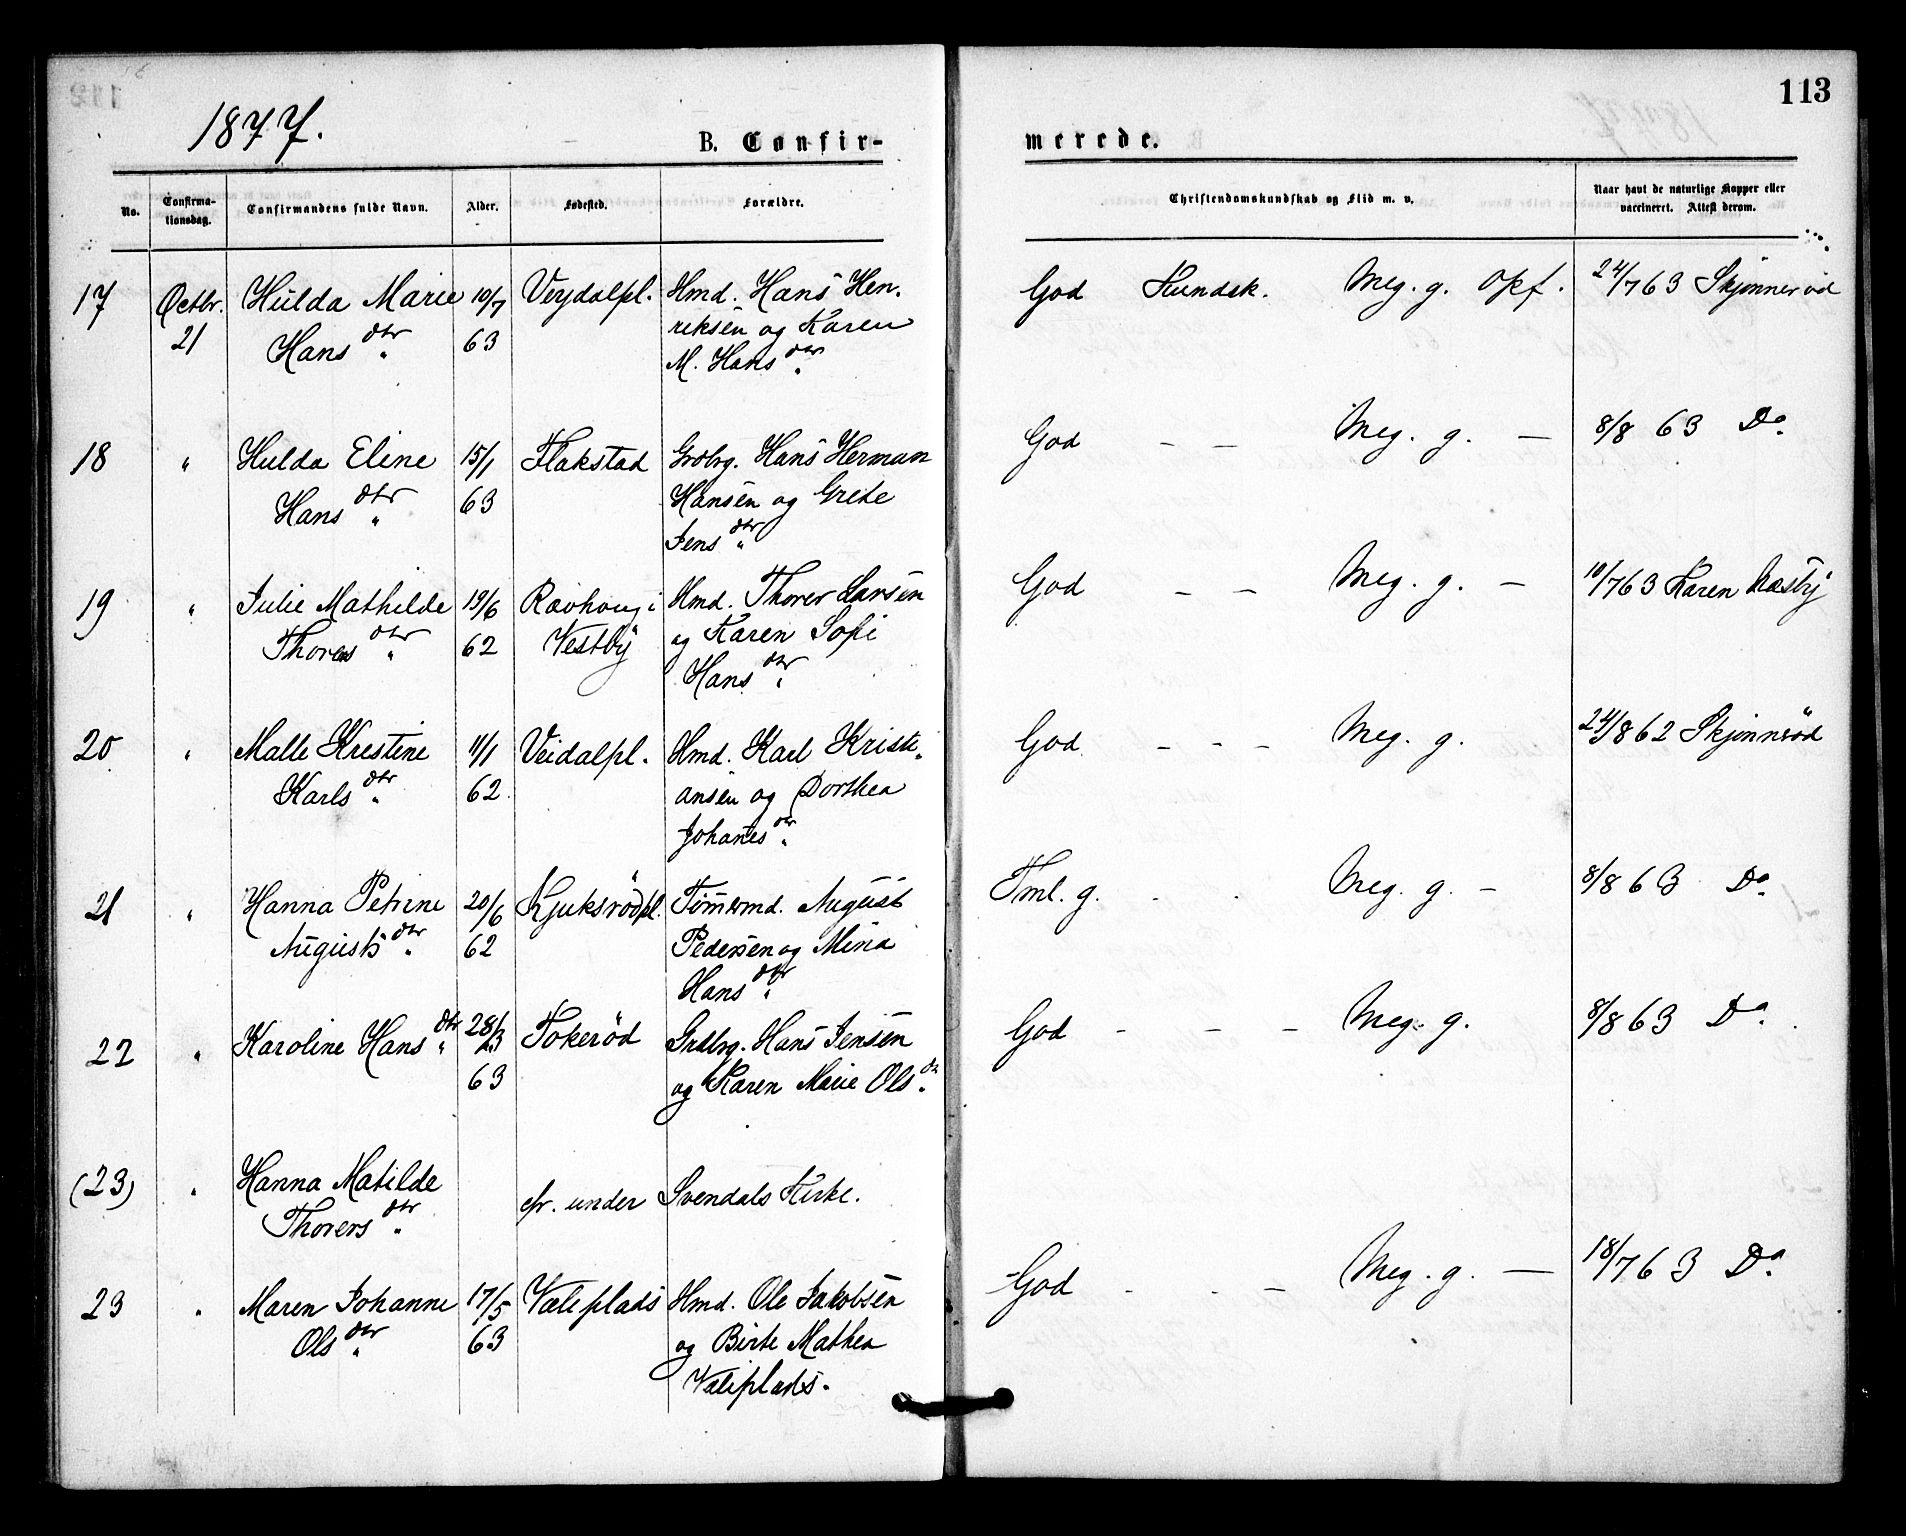 113
1877.
B. Confir-
merede.
No.
Confirma-
tionsdag.
Confirmandens fulde Navn.
Alder.
Fødested.
Forældre.
Christendomskundskab og Flid m. v.
Naar havt de naturlige Kopper eller
vaccineret. Attest derom.
17 Octbr. Hulda Marie 10/7 Vejdalpl. Hmd. Hans Hen- God Kundsk. Meg. g. Opf. 24/7 63 Skjønnerød
21 Hans dtr 63 riksen og Karen
M. Hans dtr
18 " Hulda Eline 15/1 Flakstad Grdbrg. Hans Herman God — — Meg. g. — 8/8 63 Do
Hans dtr 63 Hansen og Grete
Jens dtr
19 " Julie Mathilde 19/6 Ravhoug i Hmd. Thorer Larsen God — — Meg. g. — 10/7 63 Karen Næsby
Thores dtr 62 Vestby og Karen Sofi
Hans dtr
20 " Malle Krestine 11/1 Veidalpl. Hmd. Karl Kristi- God — — — Meg. g. 24/8 62 Skjønnrød
Karls dtr 62 ansen og Dorthea
Johanes dtr
21 " Hanna Petrine 20/6 Kjuksrødpl. Tømermd. August Tml. g. Meg. g. — 8/8 63 Do
Augusts dtr 62 Pedersen og Mina
Hans dtr
22 " Karoline Hans dtr 28/3 Tokerød Grdbrg. Hans Jensen God — — — Meg. g. 8/8 63 Do
63 og Karen Marie Ols dr
(23) " Hanna Matilde
Thorers dtr cfr. under Svendals Kirke.
23 " Maren Johanne 17/5 Væleplads Hmd. Ole Jakobsen God — Meg. g. — 18/7 63 Do
Ols dtr 63 og Birte Mathea
Væleplads.